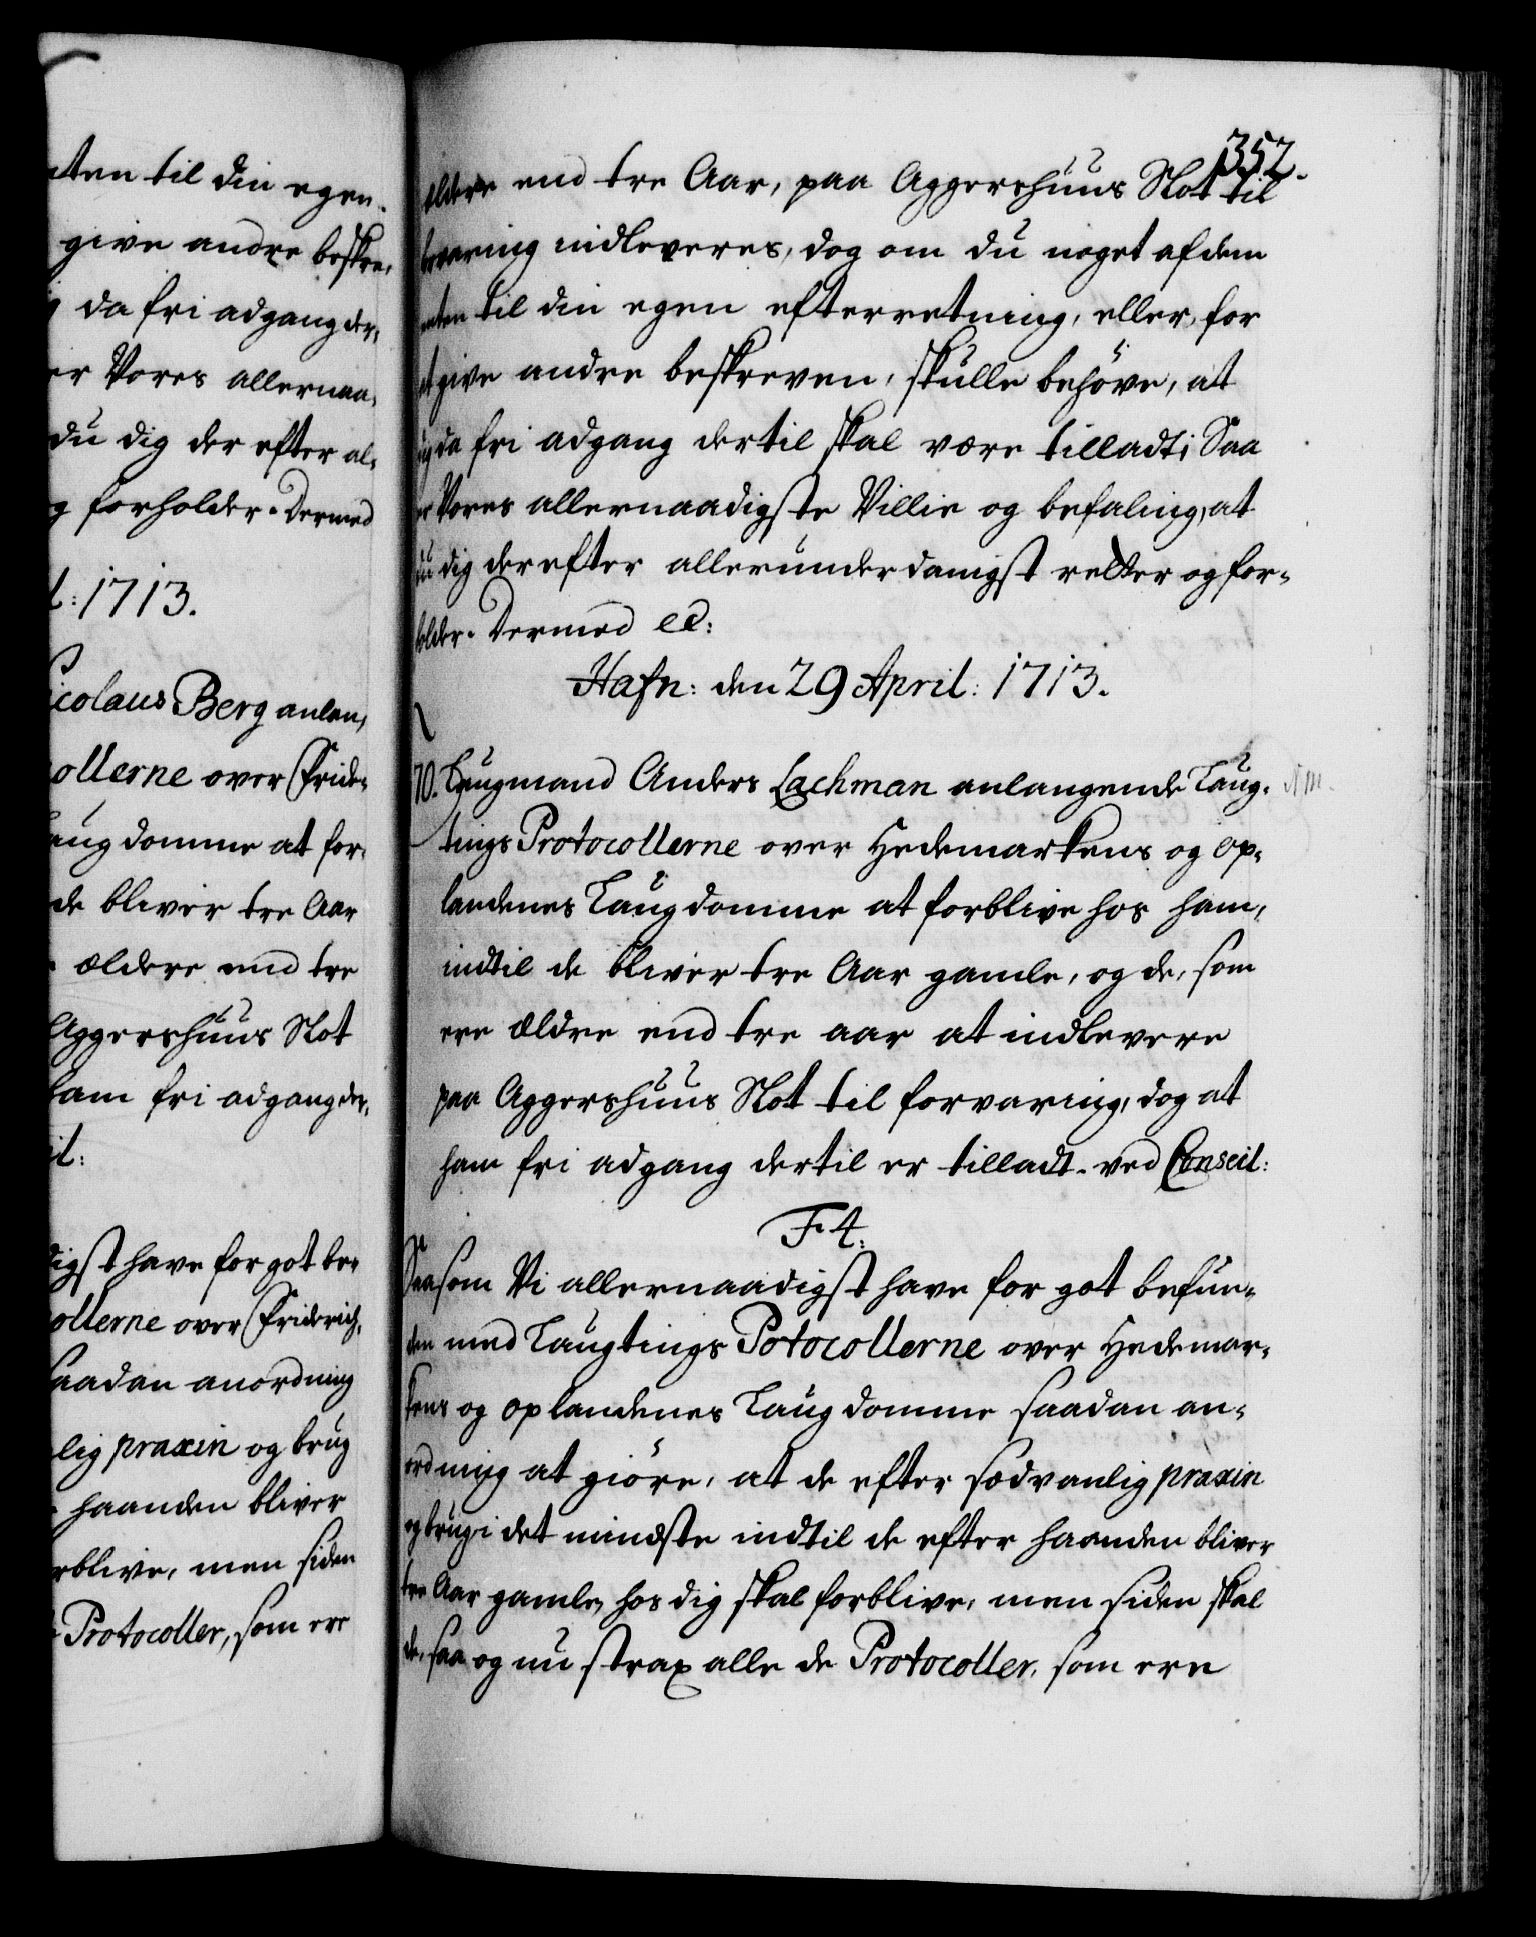 ten til din egen
give andre beskre,
da fri adgang der,
er Vores allernaa,
du dig der efter al,
forholder. Dermed
1713.
icolaus Berg anlan,
ollerne over Fride,
aug domme at for,
de bliver tre Aar
ældere end tre
Aggershuus Slot
ham fri adgang der,
il:
digst have for got be,
ollerne over Friderich,
saadan anordning
lig praxin og brug
haanden bliver
rblive, men siden
Protocoller, som ere
352.
eldere end tre Aar, paa Aggershuus Slot til
bevaring indleveres, dog om du noget af dem
enten til din egen efterretning, eller, for
at give andre beskreven, skulle behöve, at
dig da fri adgang dertil skal være tilladt; Saa
er Vores allernaadigste Villie og befaling, at
du dig derefter allerunderdanigst retter og for,
holder. Dermed ec:
Hafn: den 29 April: 1713.
70. Laugmand Anders Lachman anlangende Laug,
tings Protocollerne over Hedemarkens og op,
landenes Laugdomme at forblive hos ham,
indtil de bliver tre Aar gamle, og de, som
ere ældre end tre aar at indlevere
paa Aggershuus Slot til forvaring, dog at
ham fri adgang dertil er tilladt. ved Conseil:
F 4.
Saasom Vi allernaadigst have for got befun,
den med Laugtings Potocollerne over Hedemar,
kens og oplandenes Laugdomme saadan an,
ordning at giöre, at de efter sædvanlig praxin
og brug i det mindste indtil de efter haanden bliver
tre Aar gamle, hos dig skal forblive, men siden skal
de, saa og nu strax alle de Protocoller, som ere